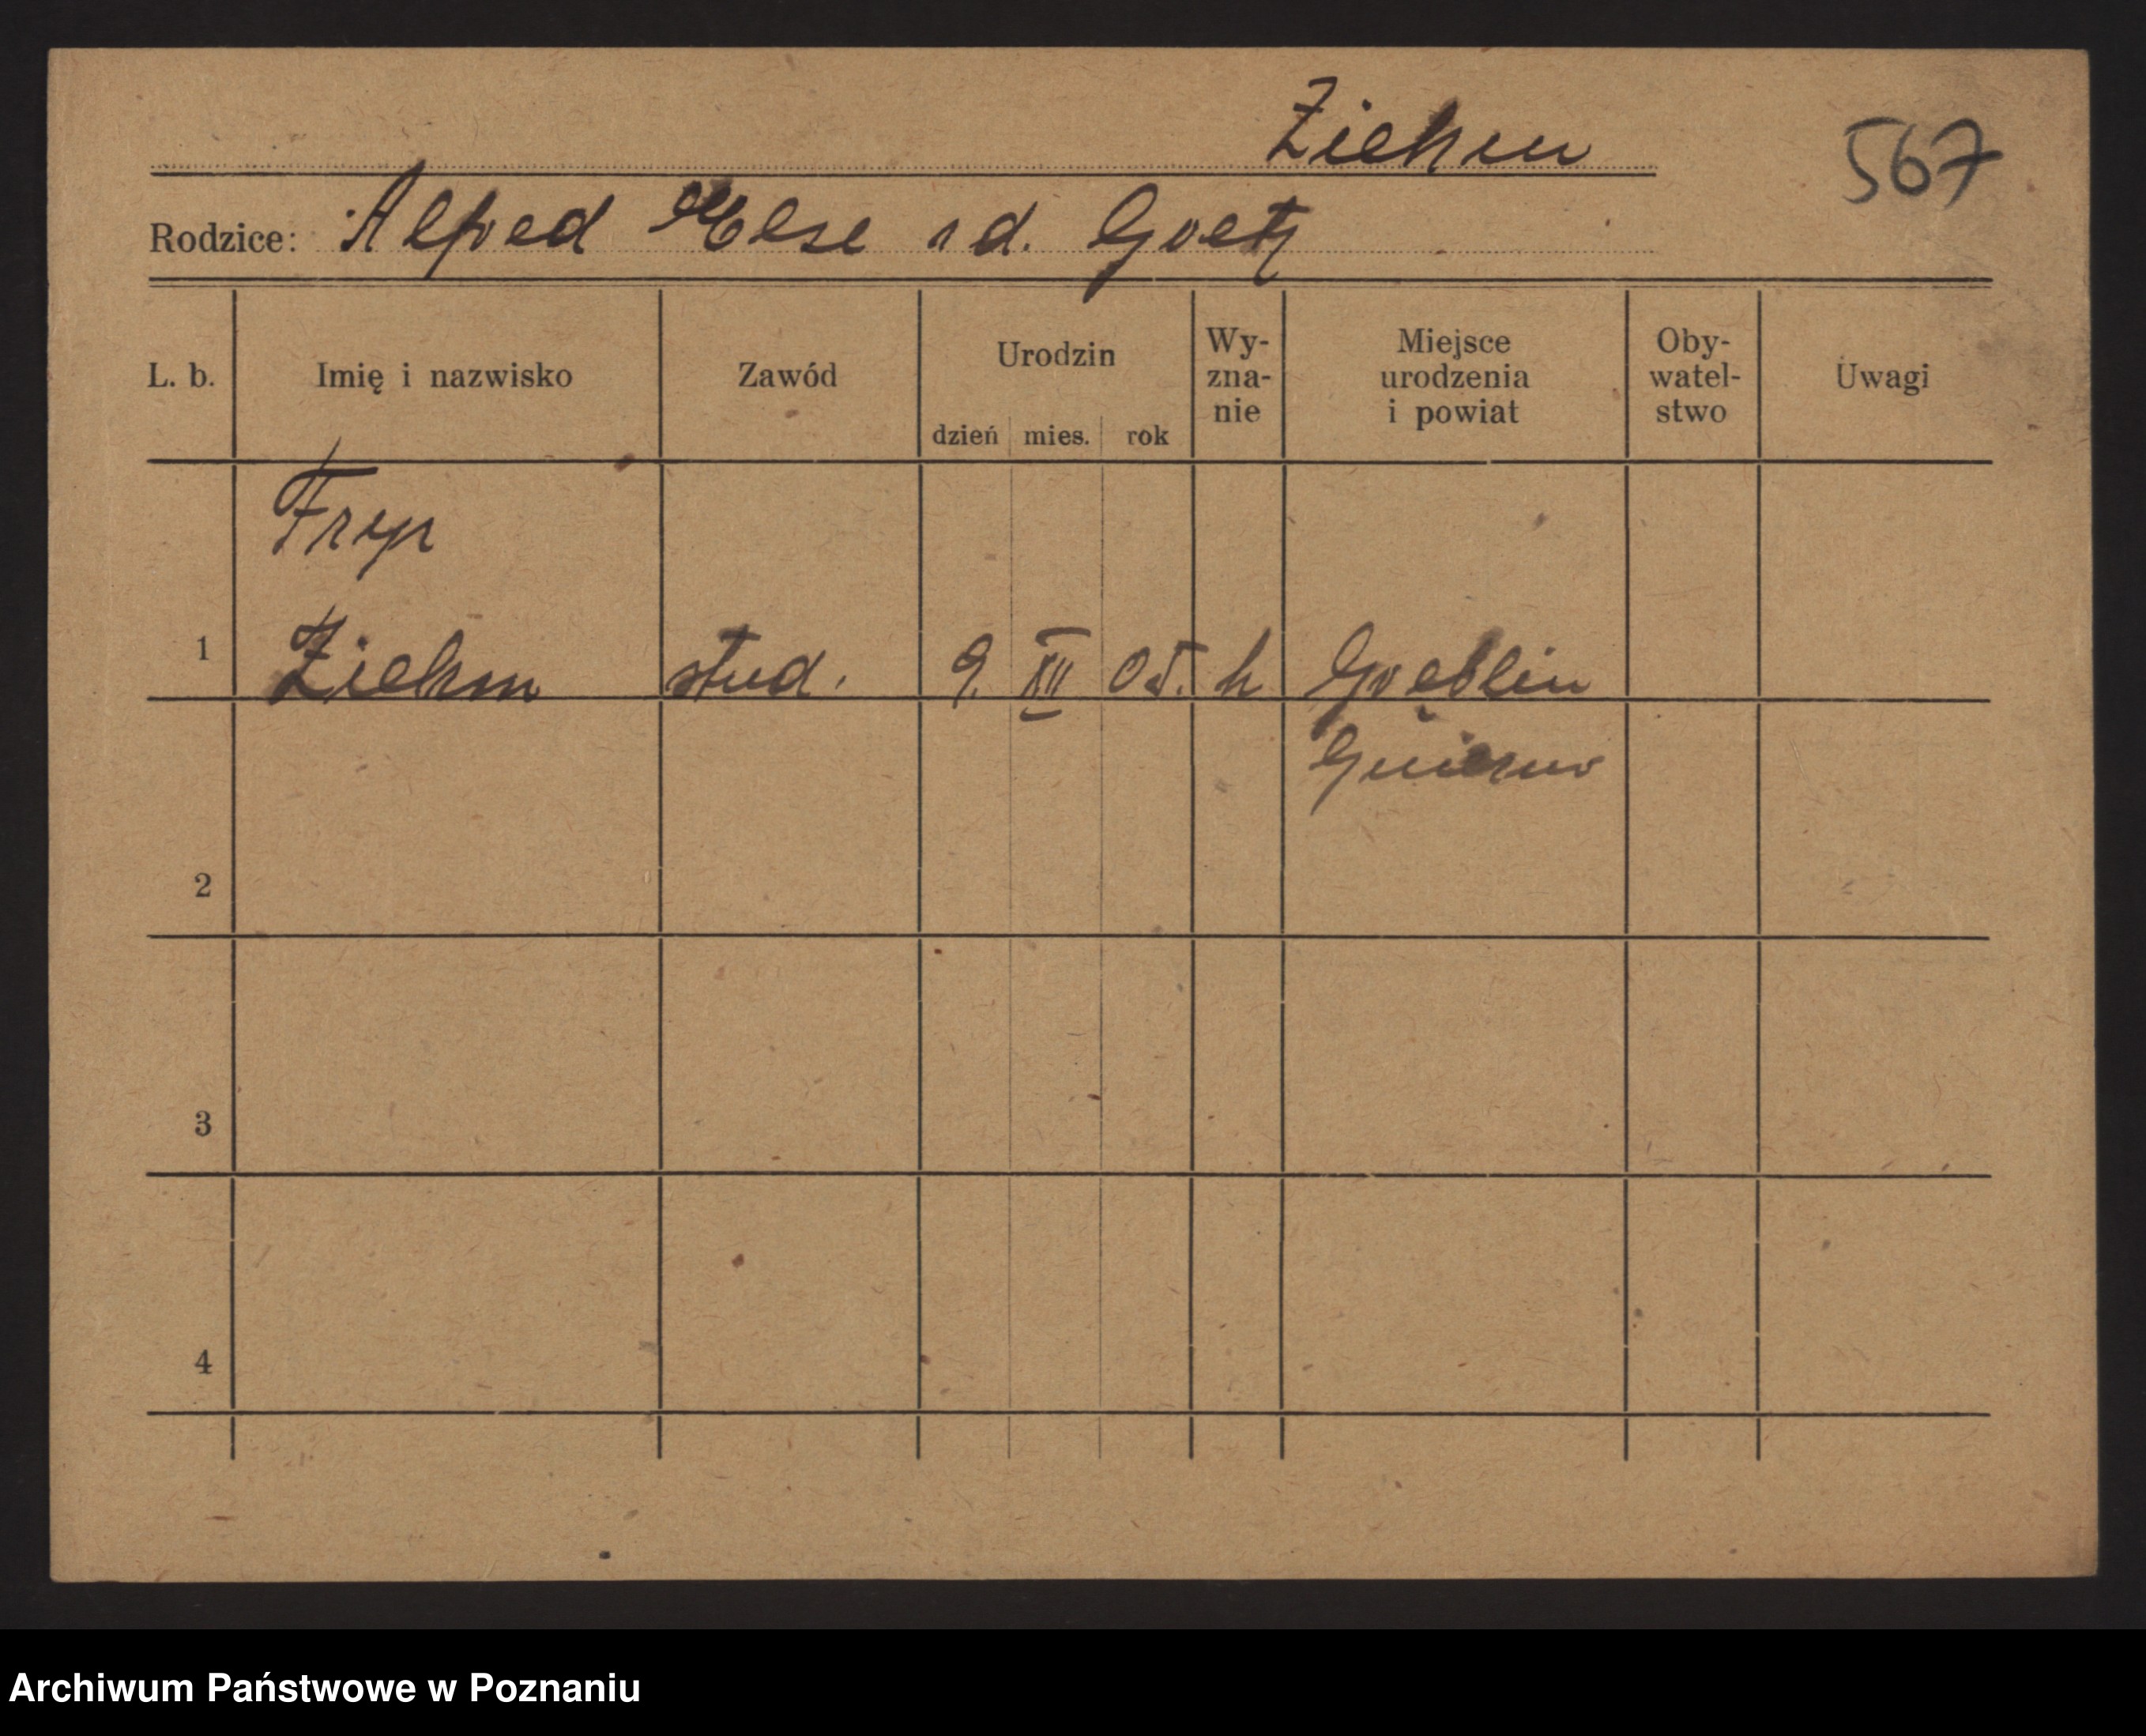 Ziehm
567
Rodzice: Alfred Else rd. Goetz
L. b. Imię i nazwisko Zawód Urodzin dzień mies. rok Wy-zna-nie Miejsce urodzenia i powiat Oby-watel-stwo Uwagi
1 Ziehm stud. 9. XII 05. h
2
3
4
Archiwum Państwowe w Poznaniu